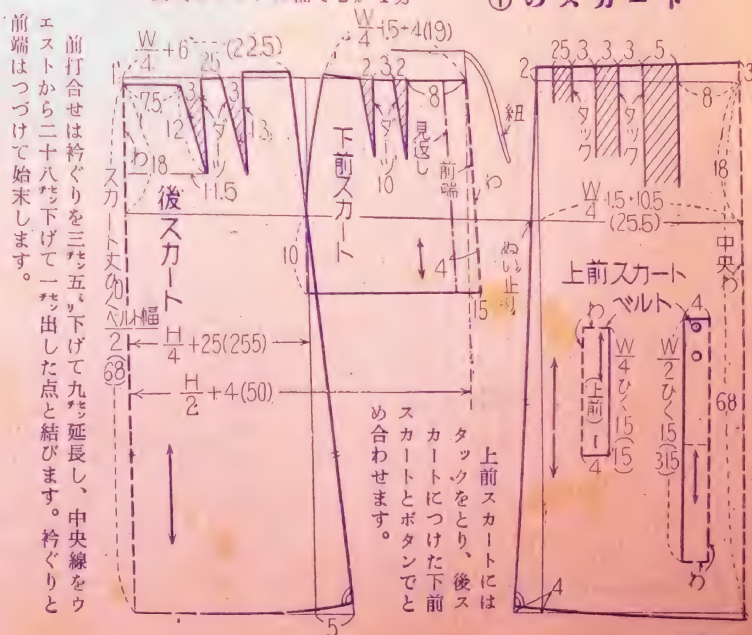 ①のスカート
W/4+6
(22.5)
25
7.5
3
3
12
13
ダーツ
わ
18
11.5
後スカート
スカート丈ひくベルト幅/2
(68)
H/4+25(255)
H/2+4(50)
5
W/4+1.5+4(19)
2 3 2
8
ダーツ
10
見返し
前端
わ
紐
下前スカート
10
4
15
2
25 3 3 3 5
8
3
タック
タック
18
W/4+1.5+10.5
(25.5)
中央わ
ぬい止り
上前スカート
ベルト
わ
4
(上前)
4
W/4ひく1.5(15)
W/2ひく1.5(315)
68
わ
4
上前スカートには
タックをとり、後ス
カートにつけた下前
スカートとボタンでと
め合わせます。
前打合せは衿ぐりを三㌢五㍉下げて九㌢延長し、中央線をウ
エストから二十八㌢下げて一㌢出した点と結びます。衿ぐりと
前端はつづけて始末します。